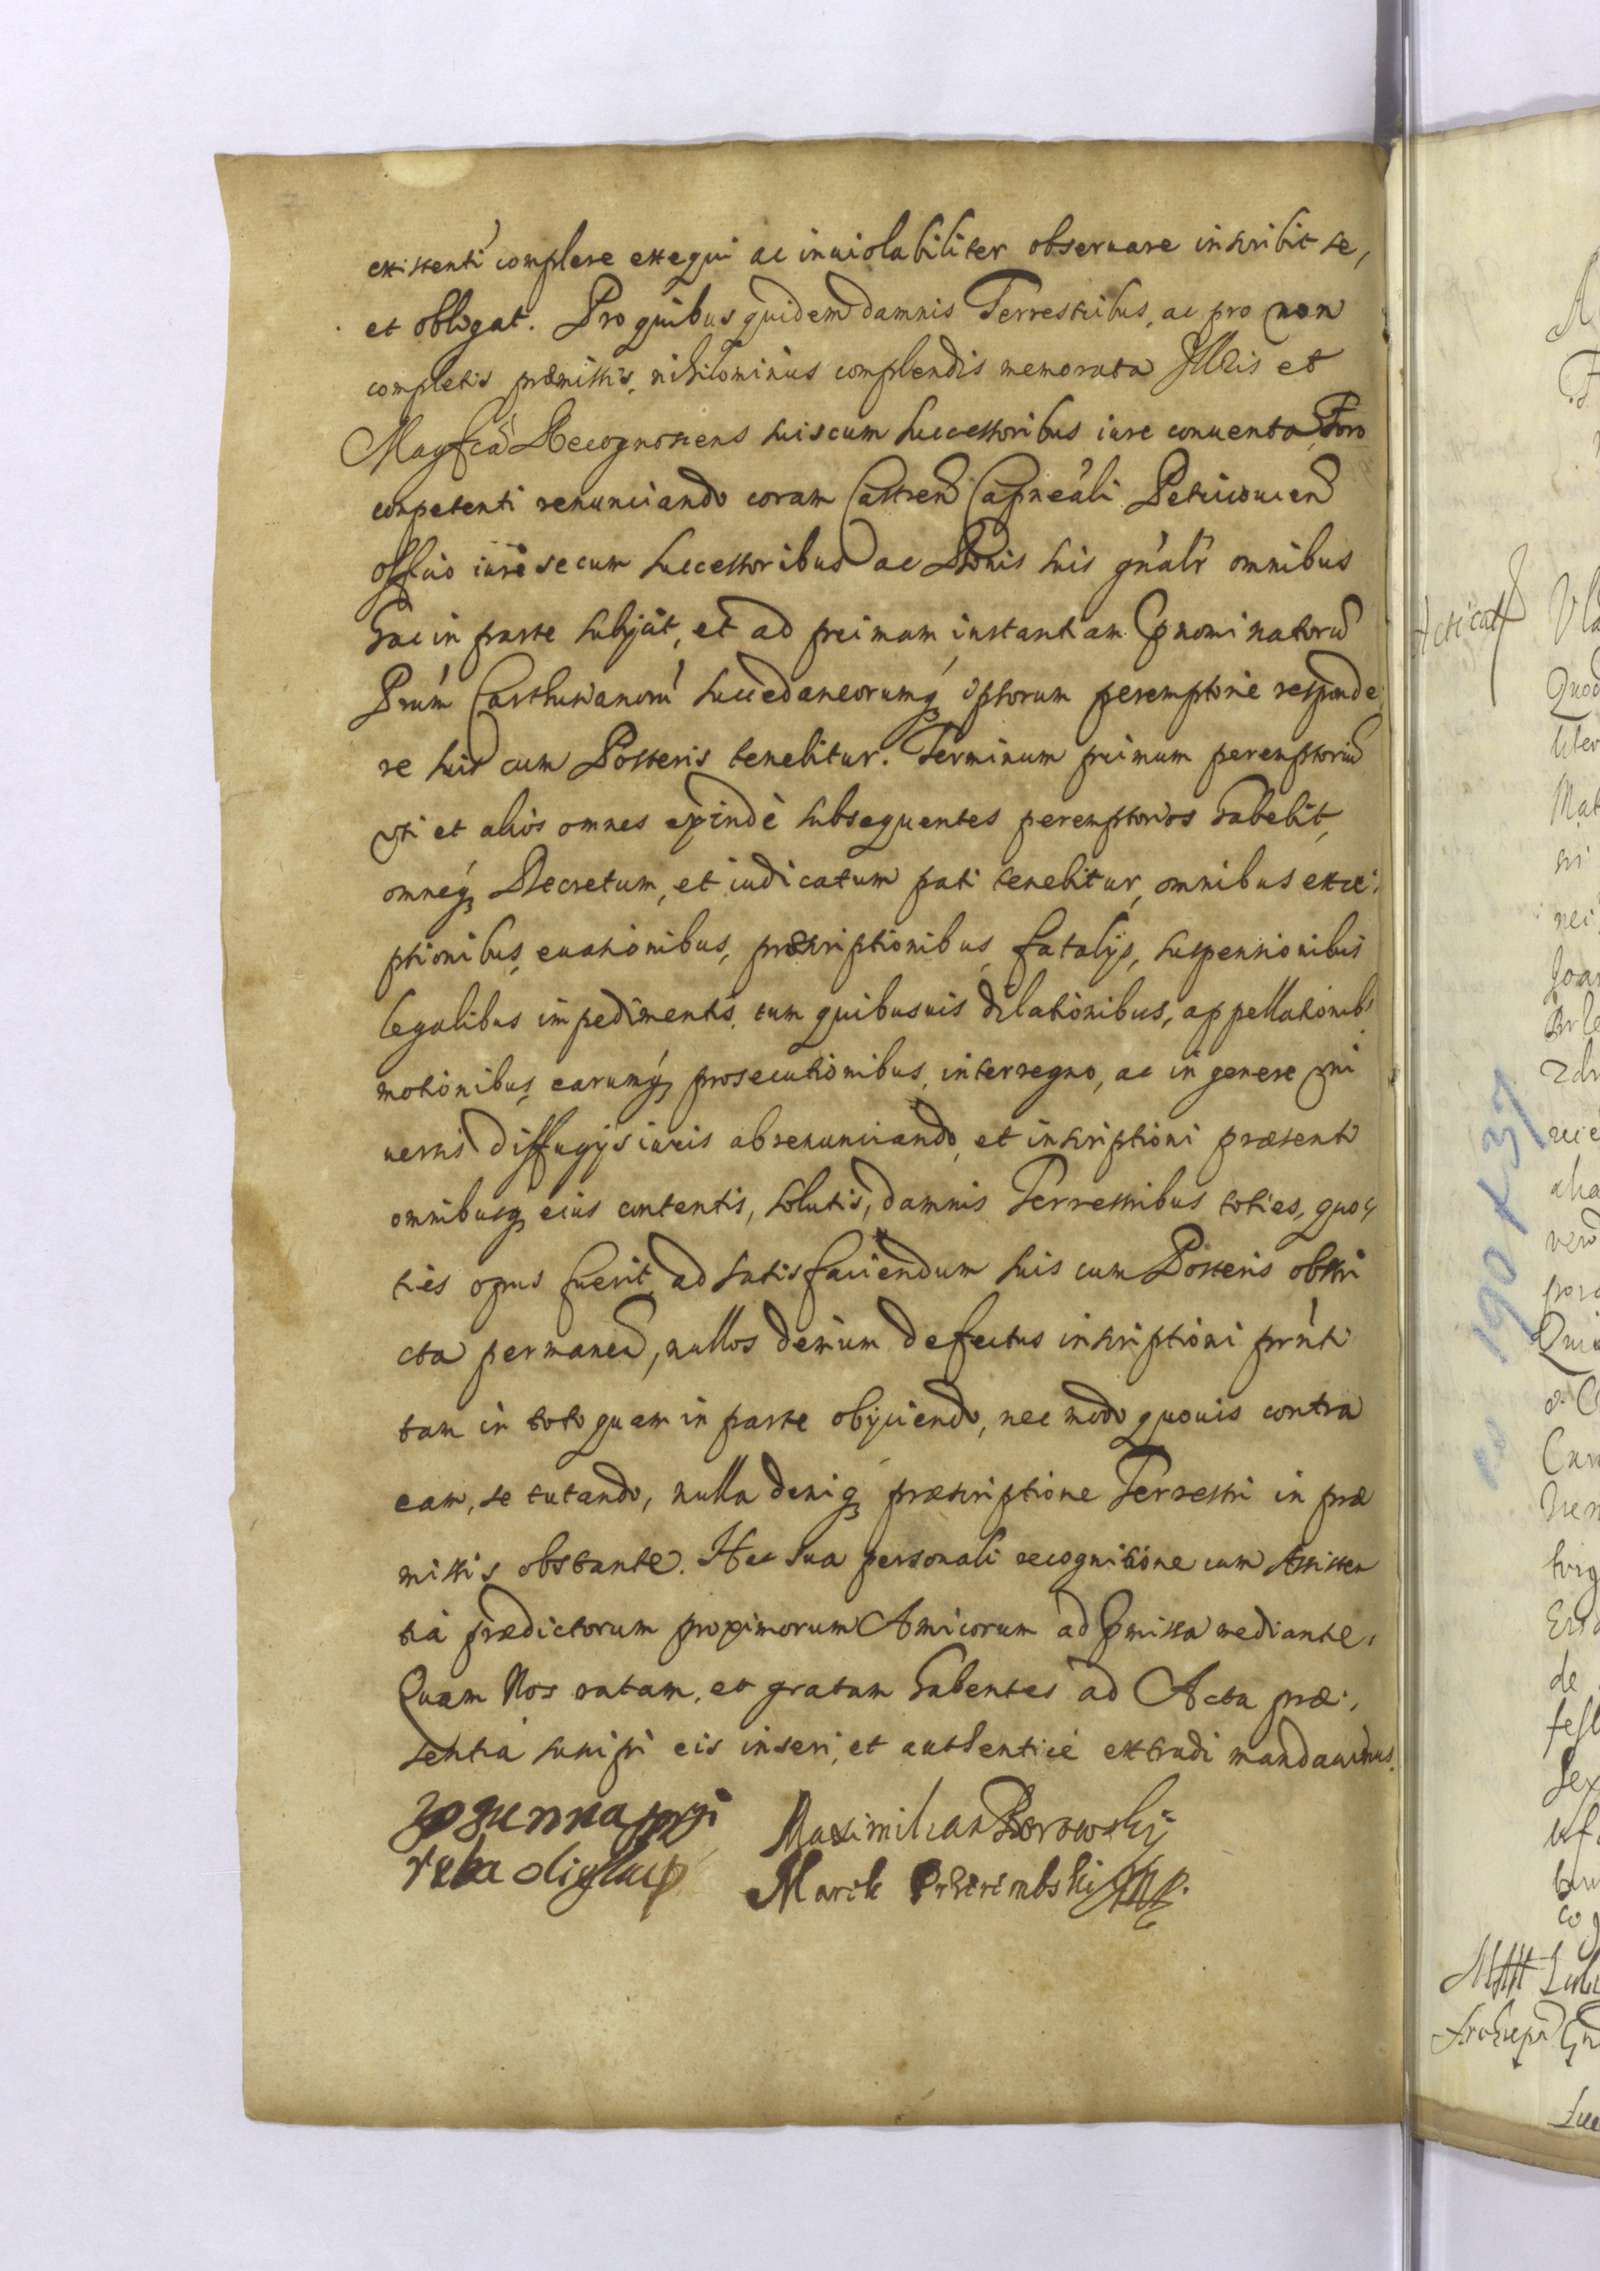 existenti complere exequi ac inuiolabiliter obseruare inscribit se,
et obligat. Pro quibus quidem damnis Terrestribus, ac pro non
completis præmissis, nihilominus complendis memorata Illris et
Magfca Recognoscens suis cum successoribus iure conuento, Foro
conpetenti renunciando coram Castren Capneali Petricouien
officio iure se cum successoribus ac Bonis suis gnalr omnibus
hac in parte subjcit, et ad primam instantiam pnominatorū
Prum Carthusianorū succedaneorumq ipsorum peremptorie responde
re suis cum Posteris tenebitur. Terminum primum peremptoriū
vti et alios omnes exinde subsequentes peremptorios habebit,
omneq Decretum, et iudicatum pati tenebitur, omnibus exce
ptionibus, euasionibus, præscriptionibus, fatalijs, suspensionibus
legalibus impedimentis, tum quibusuis dilationibus, appellationibs
motionibus, earumq prosecutionibus, interregno, ac in genere vni
uersis diffugijs iuris abrenunciando, et inscriptioni præsenti
omnibusq eius contentis, solutis, damnis Terrestribus toties, quo
ties opus fuerit, ad satisfaciendum suis cum Posteris obstri
cta permaneā, nullos demum defectus inscriptioni prnti
tam in toto quam in parte obijciendo, nec modo quouis contra
eam, se tutando, nulla deniq præscriptione Terrestri in præ
missis obstante. Hac sua personali recognitione cum Assisten
tia prædictorum proximorum Amicorum ad pmissa mediante.
Quam Nos ratam, et gratam habentes ad Acta præ
sentia suscipi eis inseri, et authentice extradi mandauimus.
Maximilian Borowskij
Marek Przerembski
Acticat
190 + 37